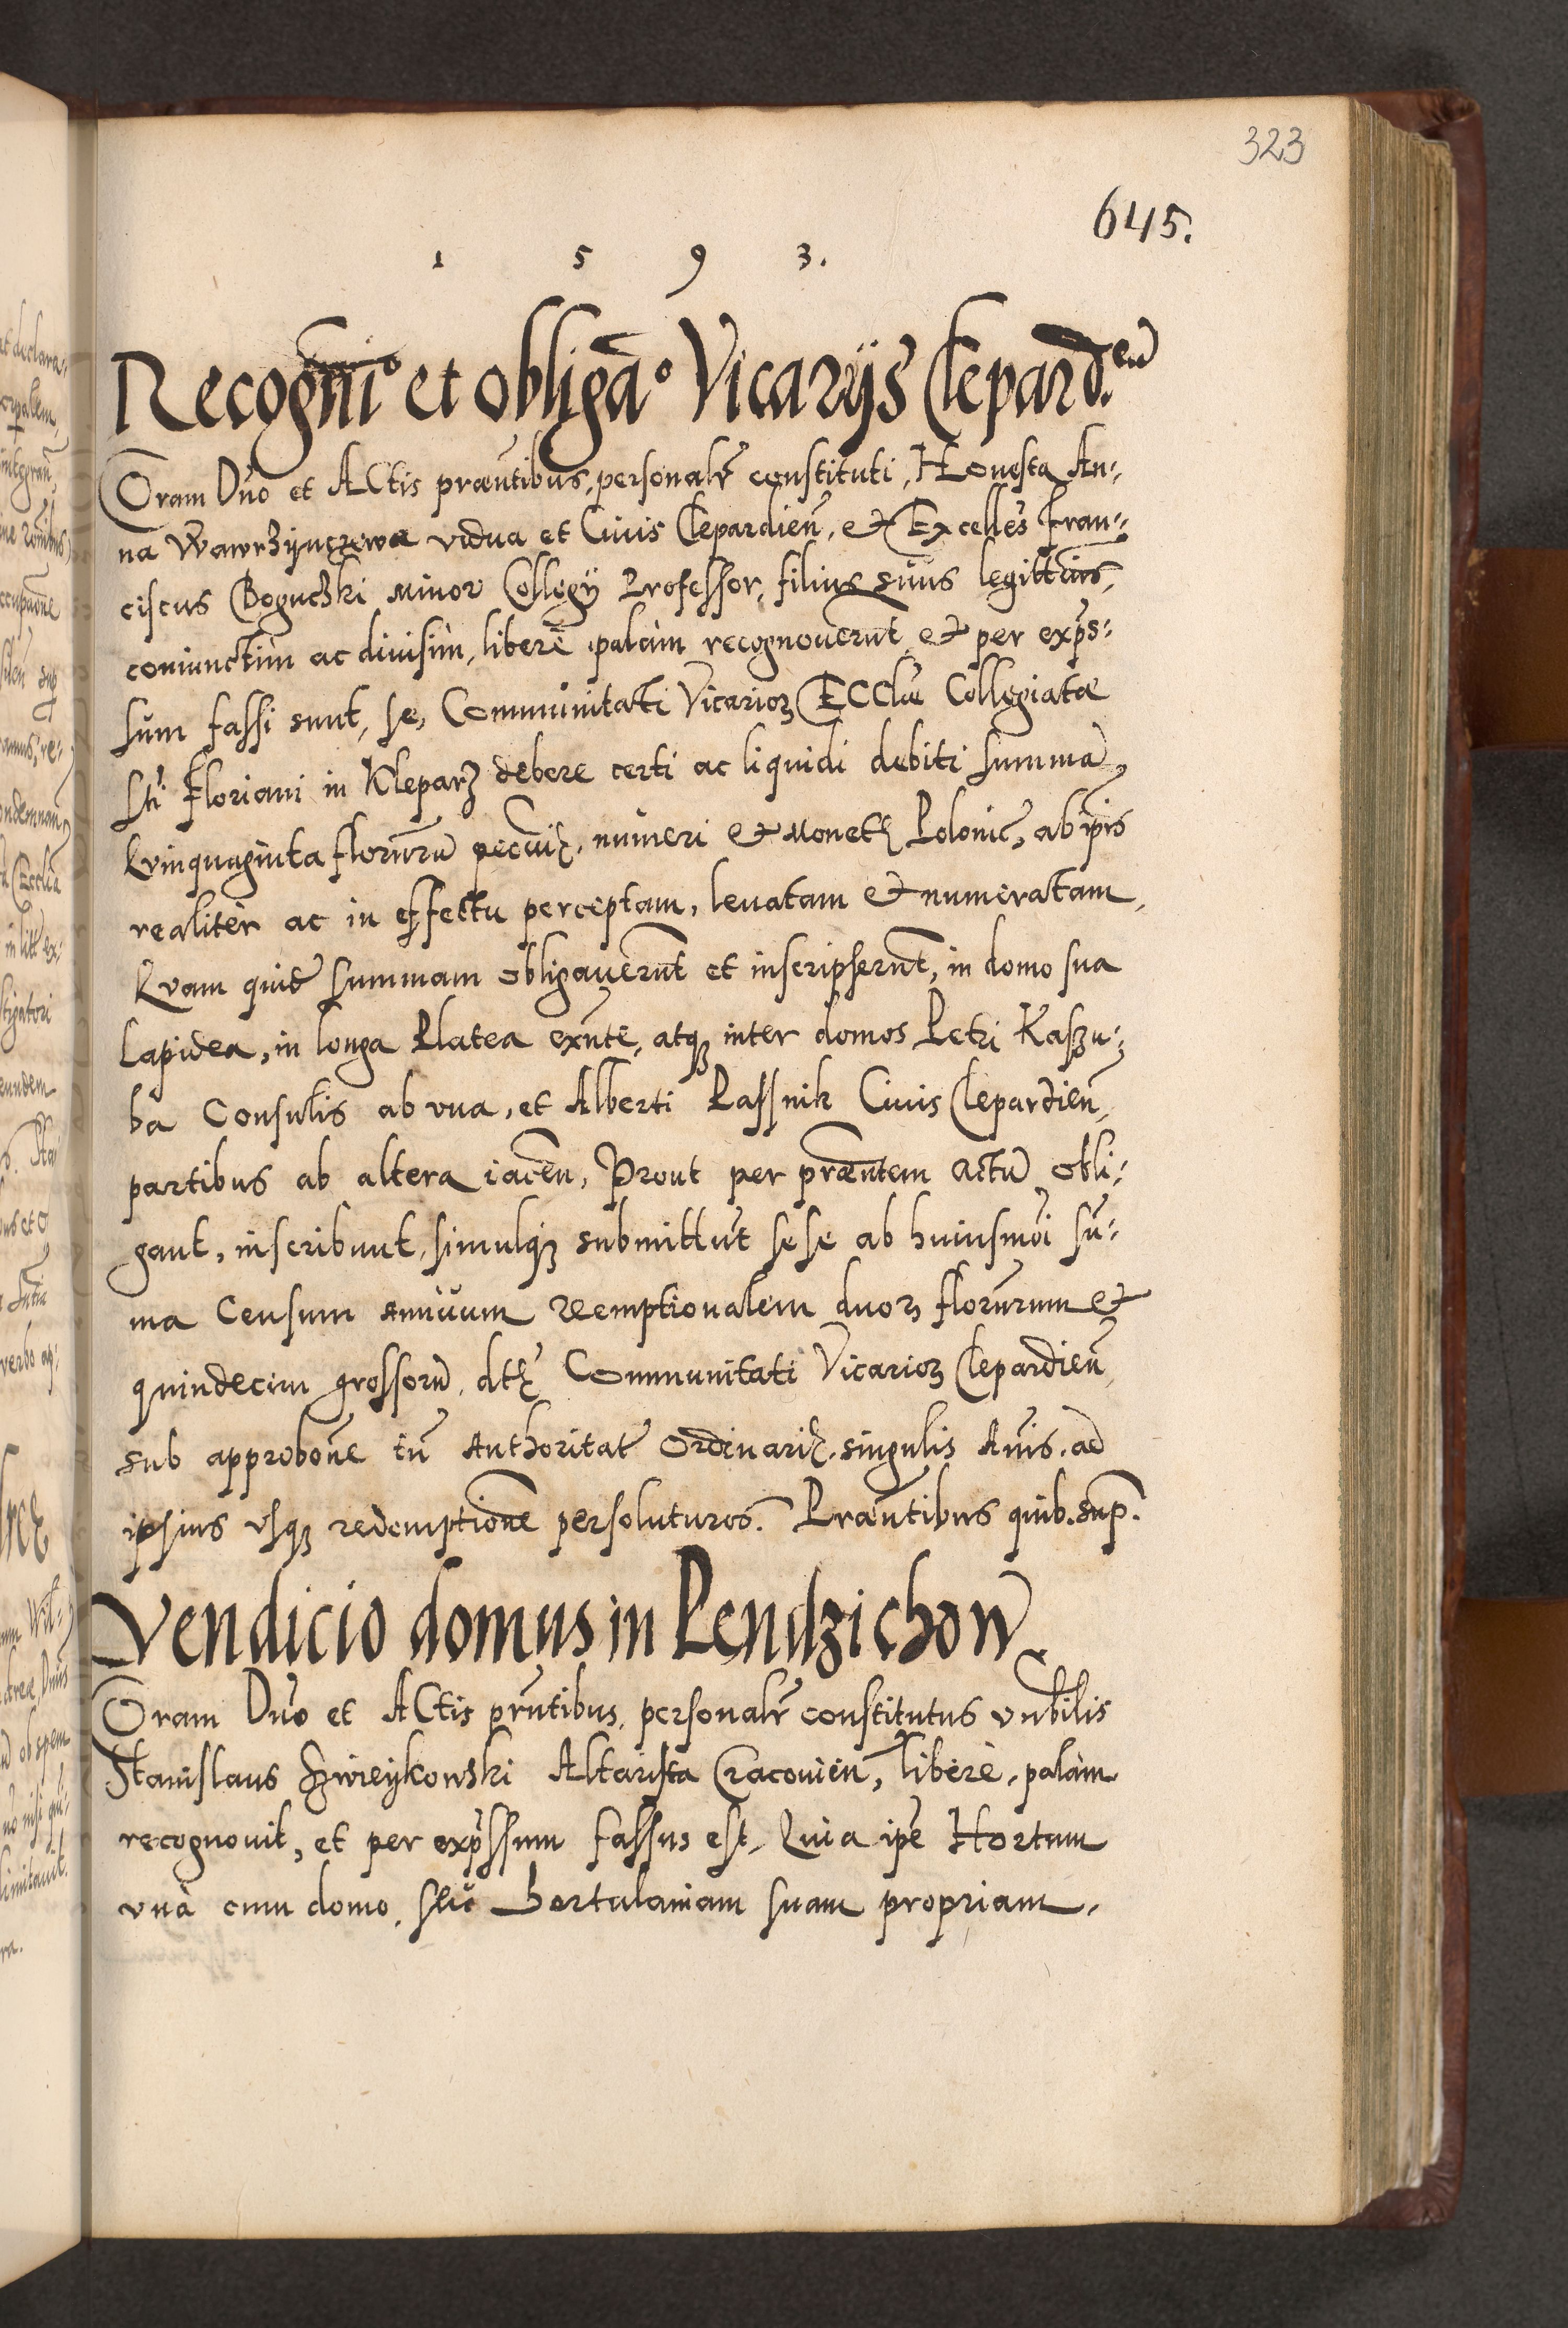 323
645.
1 5 9 3.
Recogñi° et obligã° Vicariĳs Clepard.en
Coram Dño et ACtis præñtibus, personalr̃ constituti, Honesta An:
na Wawrzÿnczewa vidua et Ciuis Clepardieñ, et Excelleñs Fran:
ciscus Boguczki Minor Collegÿ Professor, filius suus legittim̃s,
coniunctim ac diuisim, liberè palàm recognouerũt et per expr̃s:
sum fassi sunt, se, Communitati Vicarioꝝ ECClæ Collegiatæ
Sti Floriani in Kleparz debere certi ac liquidi debiti summã,
Quinquaginta florũrũ pecuniȩ, numeri et Monetȩ Polonic̃, ab ip̃is
realitèr ac in effectu perceptam, leuatam et numeratam,
Quam quid̃ summam obligauerũt et inscripserũt, in domo sua
Lapidea, in longa Platea exñte, atqꝫ inter domos Petri Kaszu:
ba Consulis ab vna, et Alberti Passnik Ciuis Clepardieñ,
partibus ab altera iaceñ, Prout per præñtem actũ obli:
gant, inscribunt, simulqꝫ submittũt sese ab huiusmõi sũ:
ma Censum annuum reemptionalem duoꝝ florũrum et
quindecim grossorũ, dtȩ̃ Communitati Vicarioꝝ Clepardieñ,
sub approbõne tñ Authoritat̃ Ordinariȩ, singulis Añis, ad
ipsius vsqꝫ redemptionẽ persoluturos. Præñtibus quib. sup.
Vendicio domus in Pendzichow.
Coram Dño et ACtis prñtibus, personalr̃ constitutus vñbilis
Stanislaus Szwieykowski Altarista Cracouieñ, liberè, palàm
recognouit, et per expr̃ssum fassus est, Quia ip̃e Hortum
vnà cum domo, seu hortulaniam suam propriam,